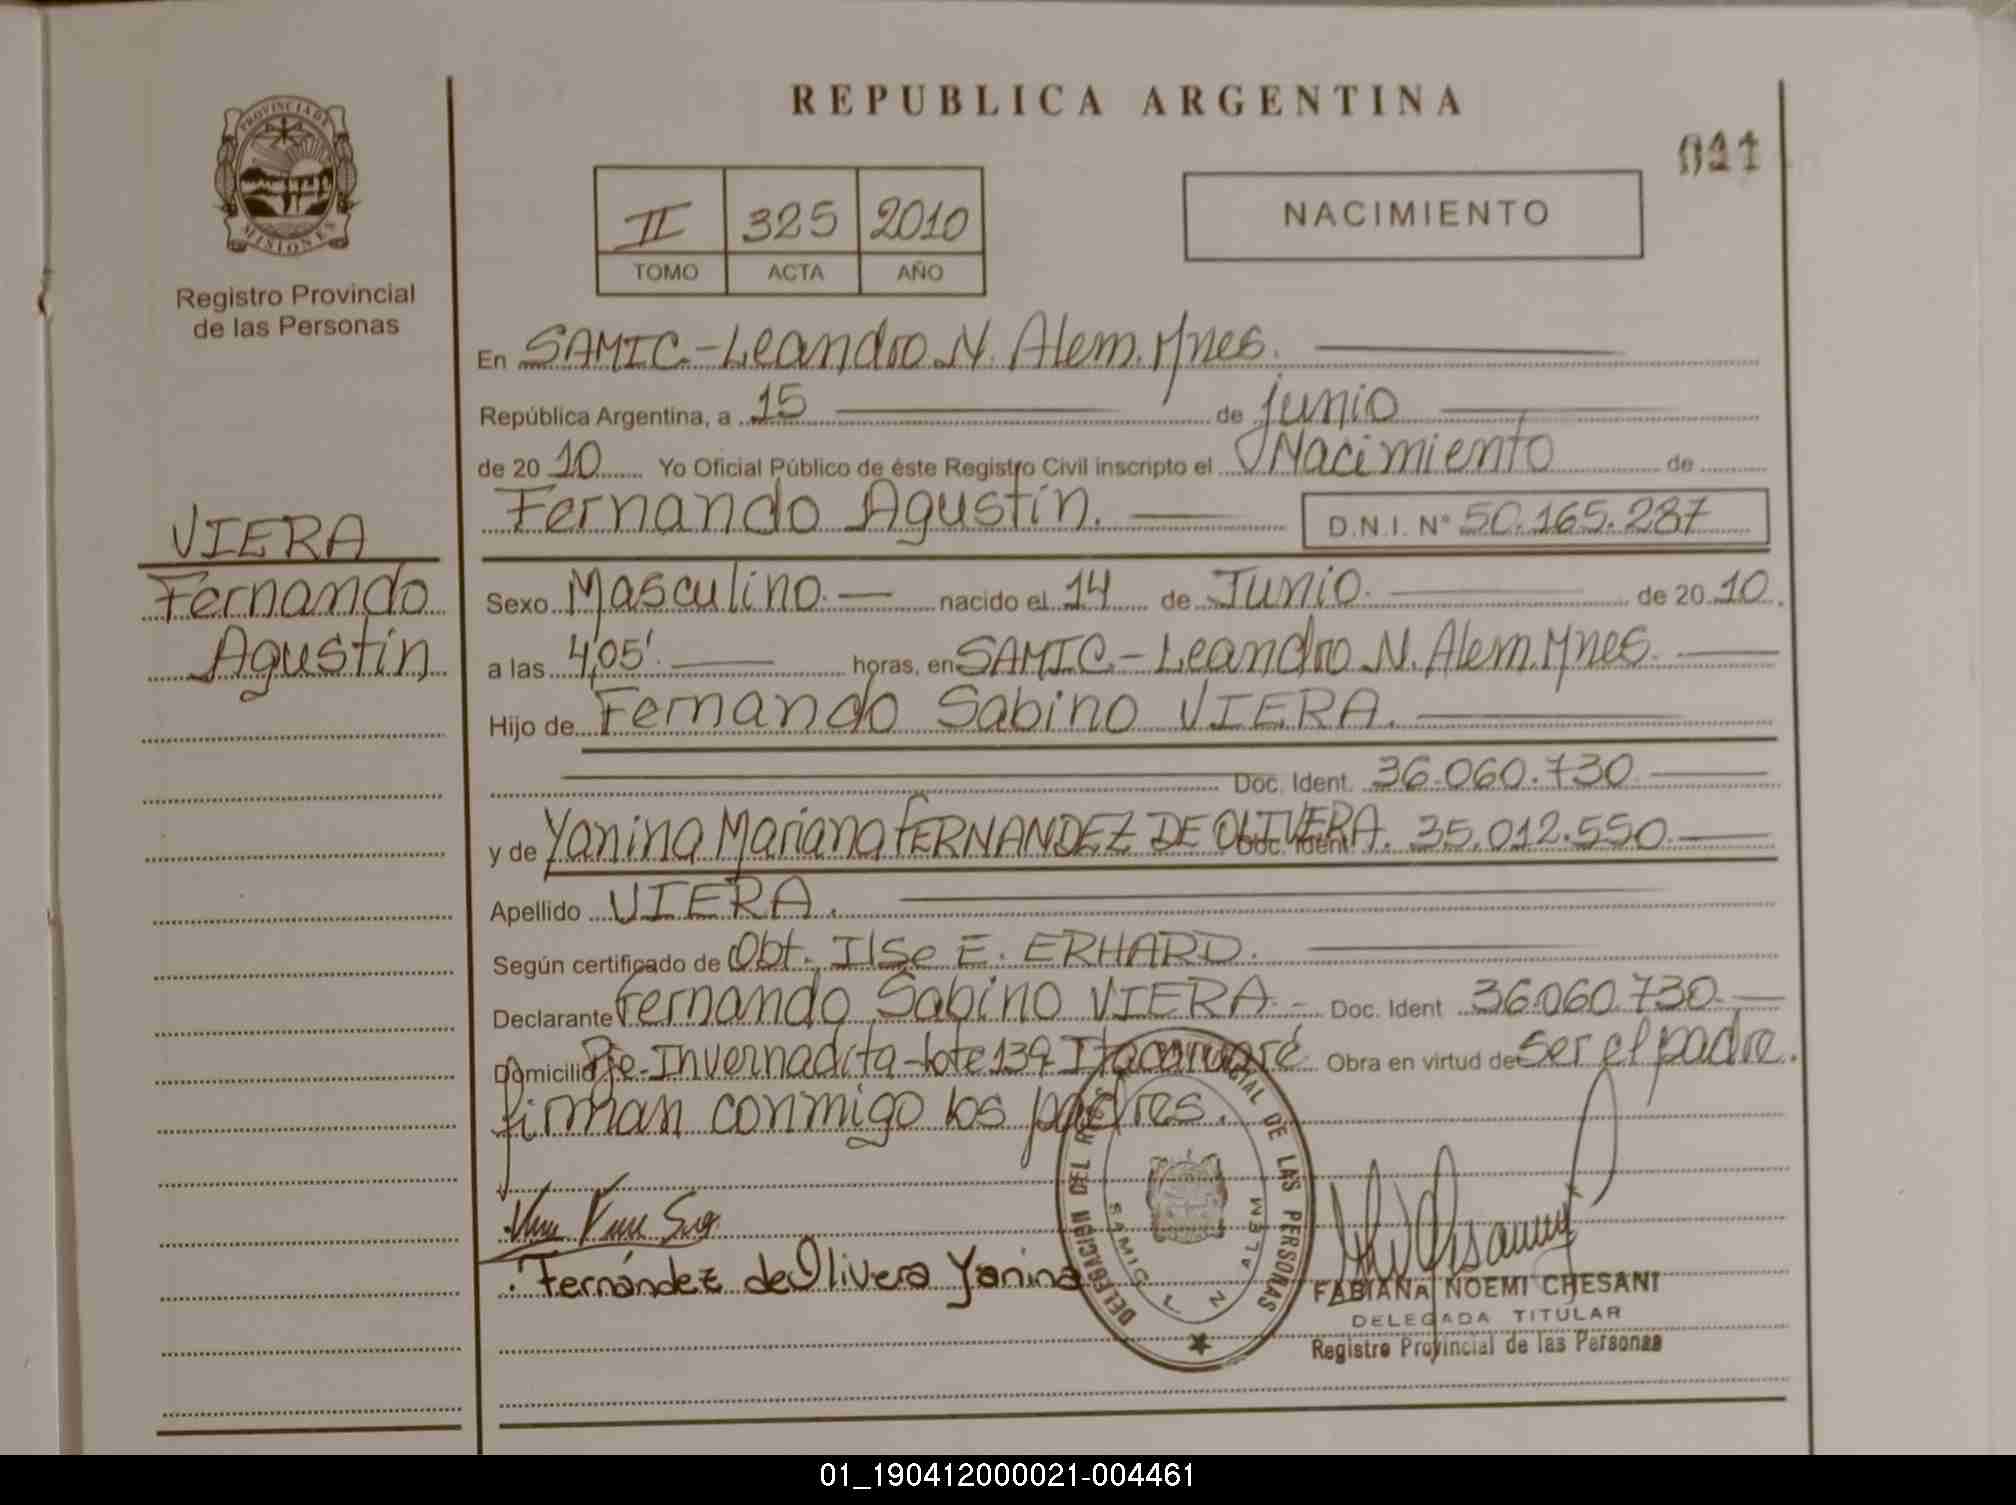 REPUBLICA ARGENTINA
021
PROVINCIA DE
MISIONES
Registro Provincial
de las Personas
II 325 2010
TOMO ACTA AÑO
NACIMIENTO
En SAMIC-Leandro N. Alem. Mnes.
República Argentina, a 15 de junio
de 20 10 Yo Oficial Público de éste Registro Civil inscripto el Nacimiento de
Fernando Agustín. D.N.I. N° 50.165.287
VIERA
Fernando
Agustín
Sexo Masculino. nacido el 14 de Junio. de 20 10.
a las 4,05'. horas, en SAMIC-Leandro N. Alem. Mnes.
Hijo de Fernando Sabino VIERA.
Doc. Ident. 36.060.730
y de Yanina Mariana FERNANDEZ DE OLIVERA. Doc. Ident. 35.012.550
Apellido VIERA.
Según certificado de Obt. Ilse E. ERHARD.
Declarante Fernando Sabino VIERA.- Doc. Ident 36.060.730
Domicilio Pje-Invernadita-lote 139-Itacaruaré Obra en virtud de ser el padre.
firman conmigo los padres.
Fernández de Olivera Yanina
DELEGACION DEL REGISTRO PROVINCIAL DE LAS PERSONAS
SAMIC L N ALEM
FABIANA NOEMI CHESANI
DELEGADA TITULAR
Registro Provincial de las Personas
01_190412000021-004461